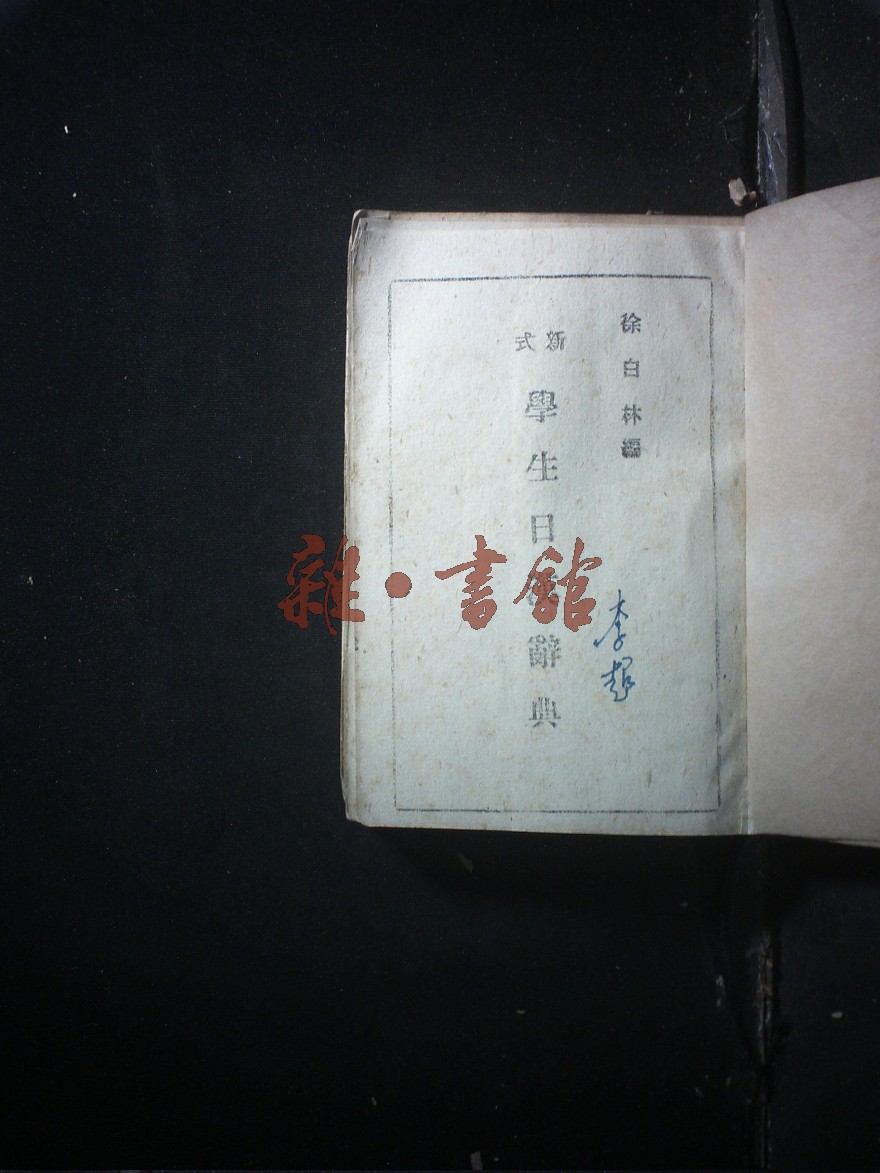 徐白林編
新式
學生日辭典
李超
雜·書館